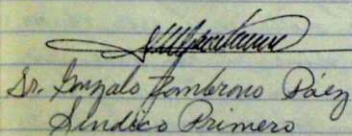 Sr. Gonzalo Zambrono Páez
Síndico Primero